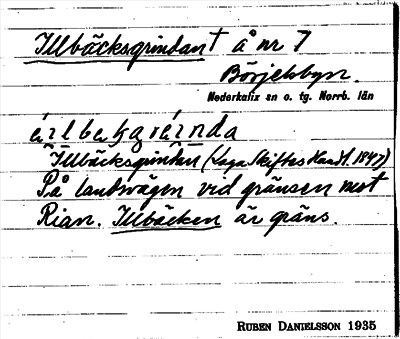 Illbäcksgrindan† å nr 7
Börjelsbyn.
Nederkalix sn o. tg. Norrb. län
Illbäcksgrindan (Laga Skifteshandl. 1847)
På landsvägen vid gränsen mot
Rian. Illbäcken är gräns.
RUBEN DANIELSSON 1935